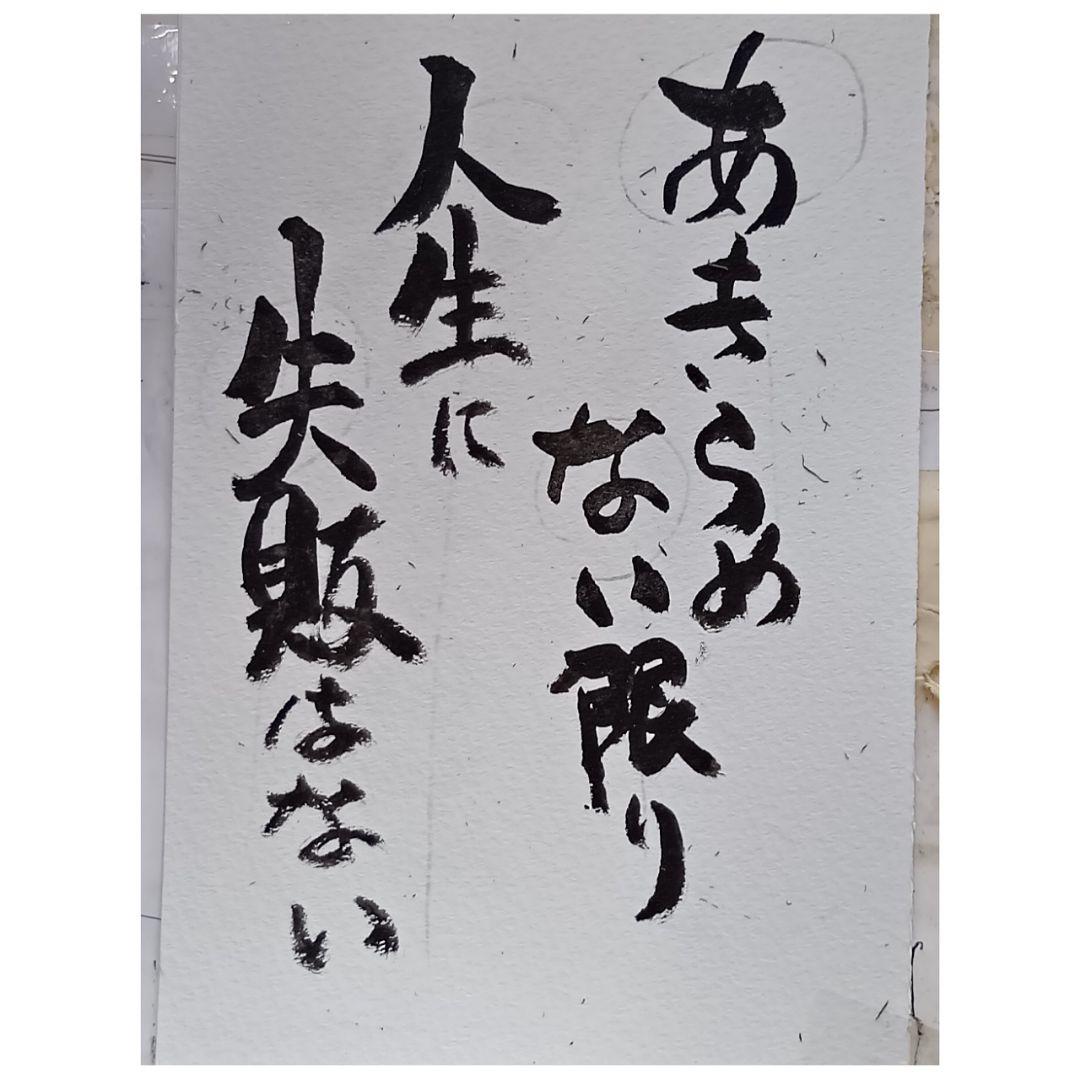 あきらめ
ない限り
人生に
失敗はない